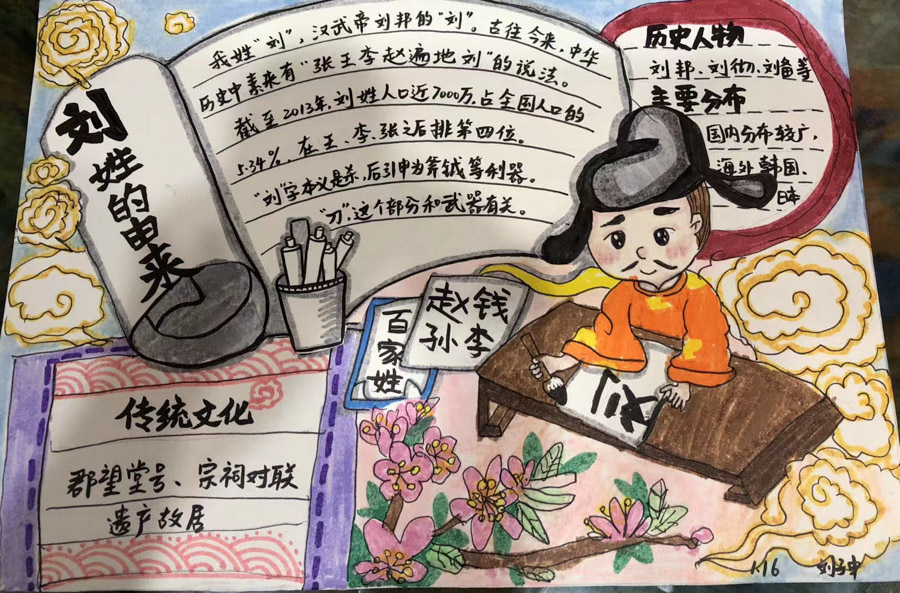 刘姓的由来
我姓“刘”，汉武帝刘邦的“刘”。古往今来，中华
历史中素来有“张王李赵遍地刘”的说法。
截至2013年，刘姓人口近7000万，占全国人口的
5.34%，在王、李、张之后排第四位。
“刘”字本义是杀，后引申为斧钺等利器。
“刀”这个部分和武器有关。
历史人物
刘邦、刘彻、刘备等
主要分布
国内分布较广，
海外韩国、
日本
百家姓
赵钱
孙李
刘
传统文化
郡望堂号、宗祠对联
遗产故居
1.16